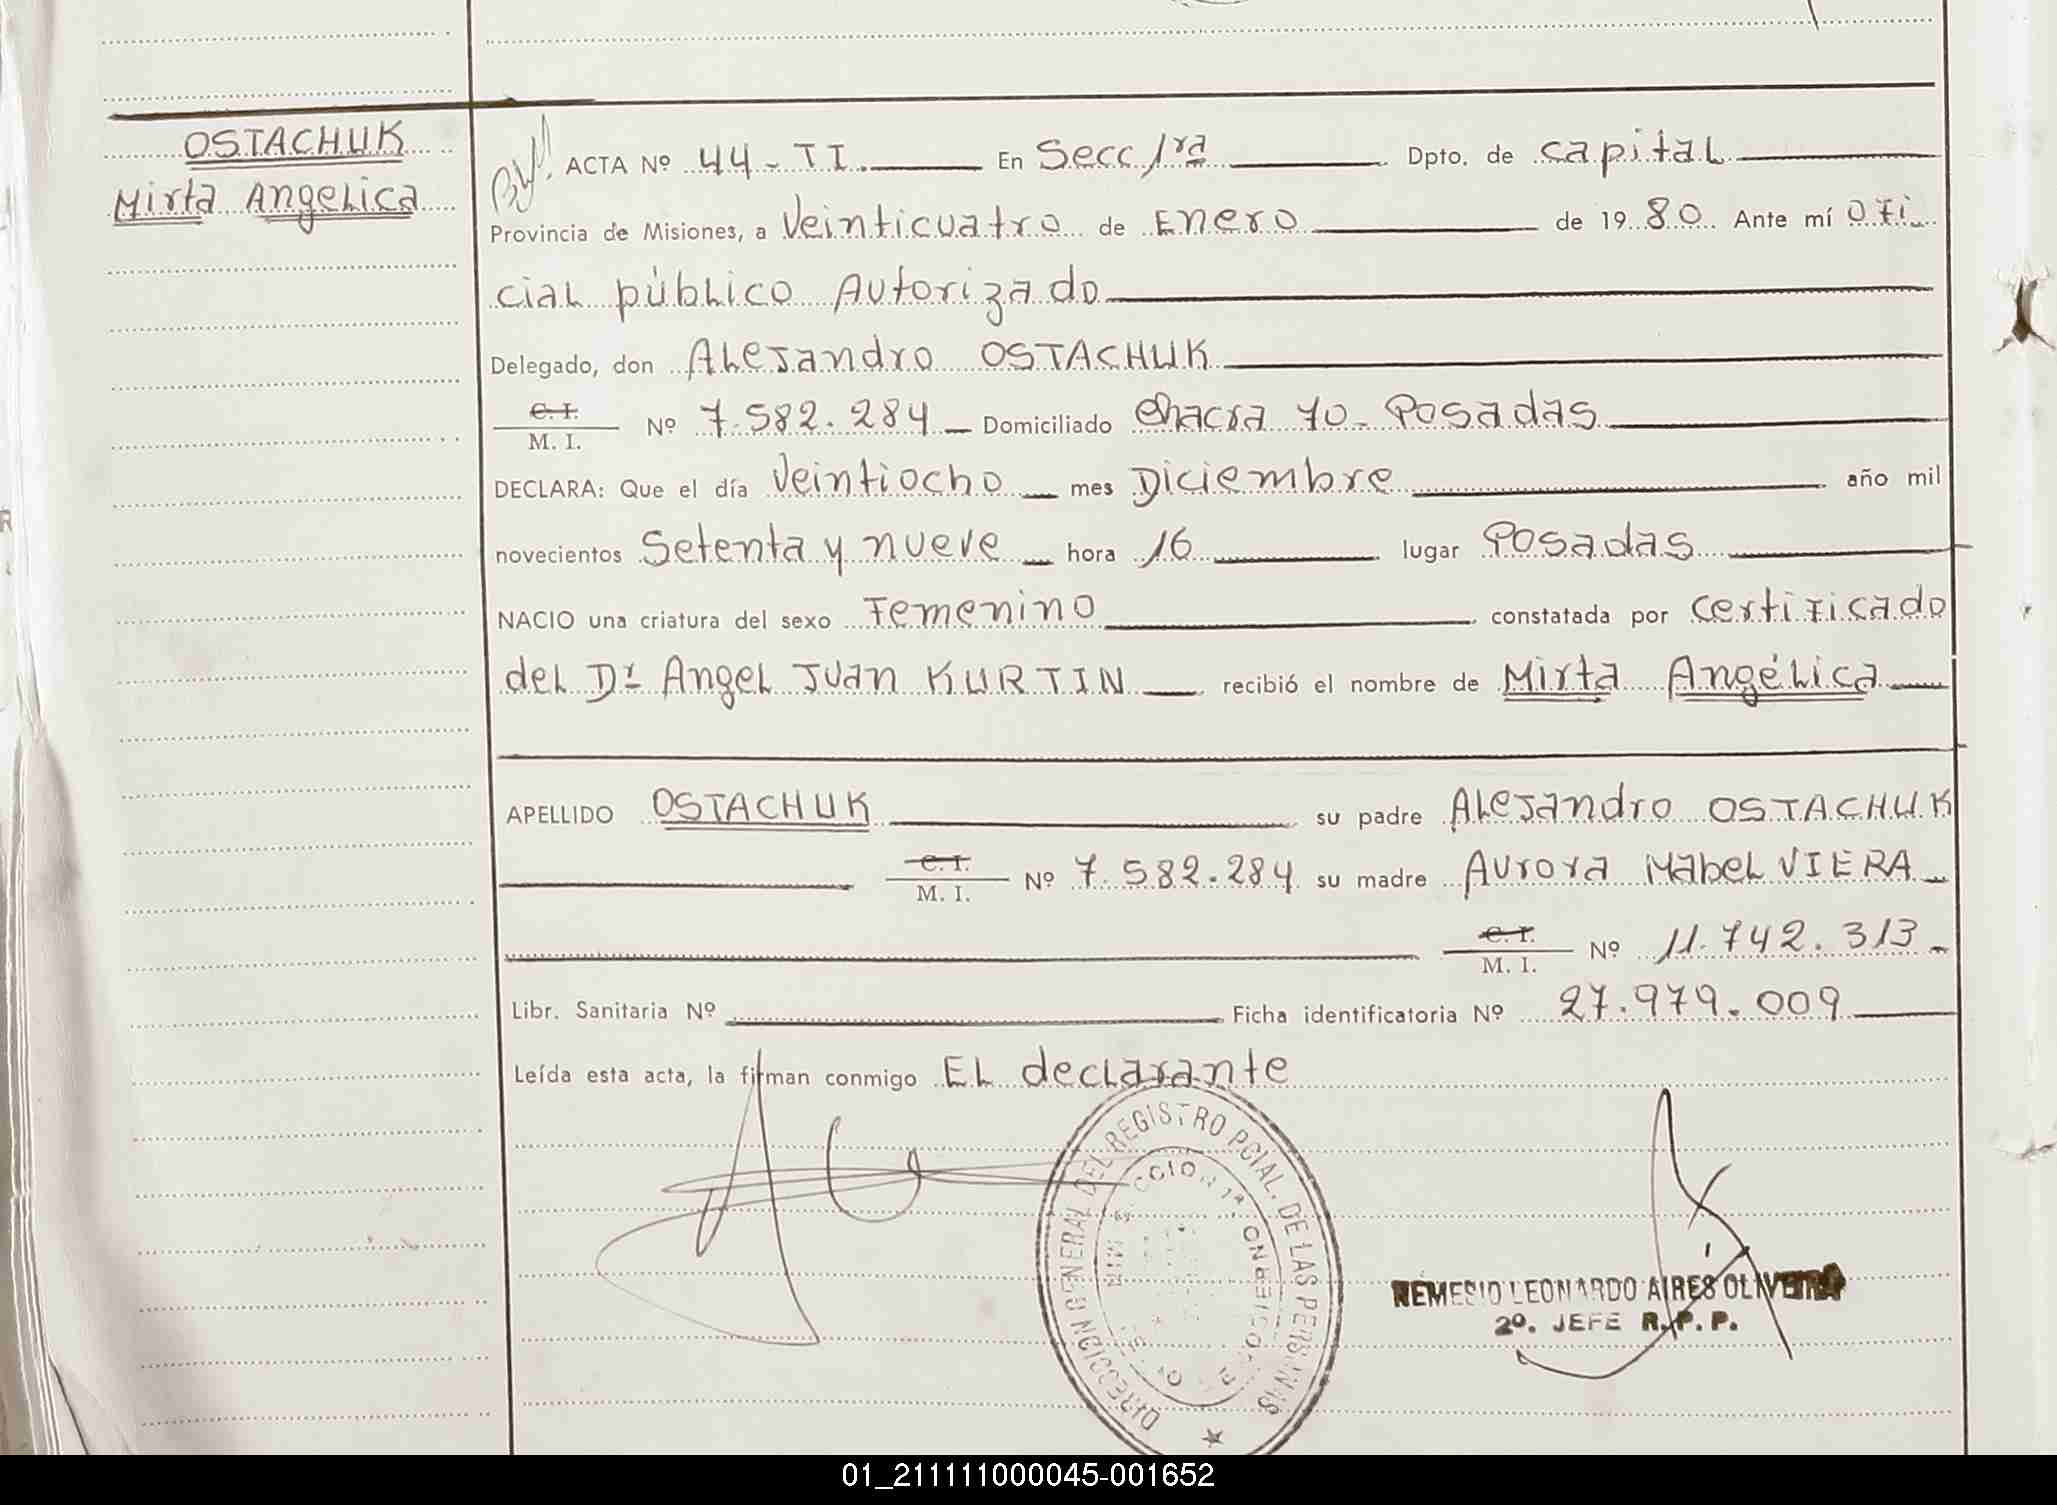 OSTACHUK
Mirta Angelica
ACTA Nº 44-TI. En Secc 1ra Dpto. de capital
Provincia de Misiones, a Veinticuatro de Enero de 1980. Ante mí Ofi
cial público Autorizado
Delegado, don Alejandro OSTACHUK
C. I.
M. I. Nº 7.582.284 Domiciliado Chacra 70 - Posadas
DECLARA: Que el día Veintiocho mes Diciembre año mil
novecientos Setenta y nueve hora 16 lugar Posadas
NACIO una criatura del sexo Femenino constatada por certificado
del Dr Angel Juan KURTIN recibió el nombre de Mirta Angélica
APELLIDO OSTACHUK su padre Alejandro OSTACHUK
C. I.
M. I. Nº 7.582.284 su madre Aurora Mabel VIERA
C. I.
M. I. Nº 11.742.313.-
Libr. Sanitaria Nº Ficha identificatoria Nº 27.979.009
Leída esta acta, la firman conmigo EL declarante
DIRECCION GENERAL DEL REGISTRO PCIAL. DE LAS PERSONAS
REMESIO LEONARDO AIRES OLIVEIRA
2º. JEFE R. P. P.
01_211111000045-001652